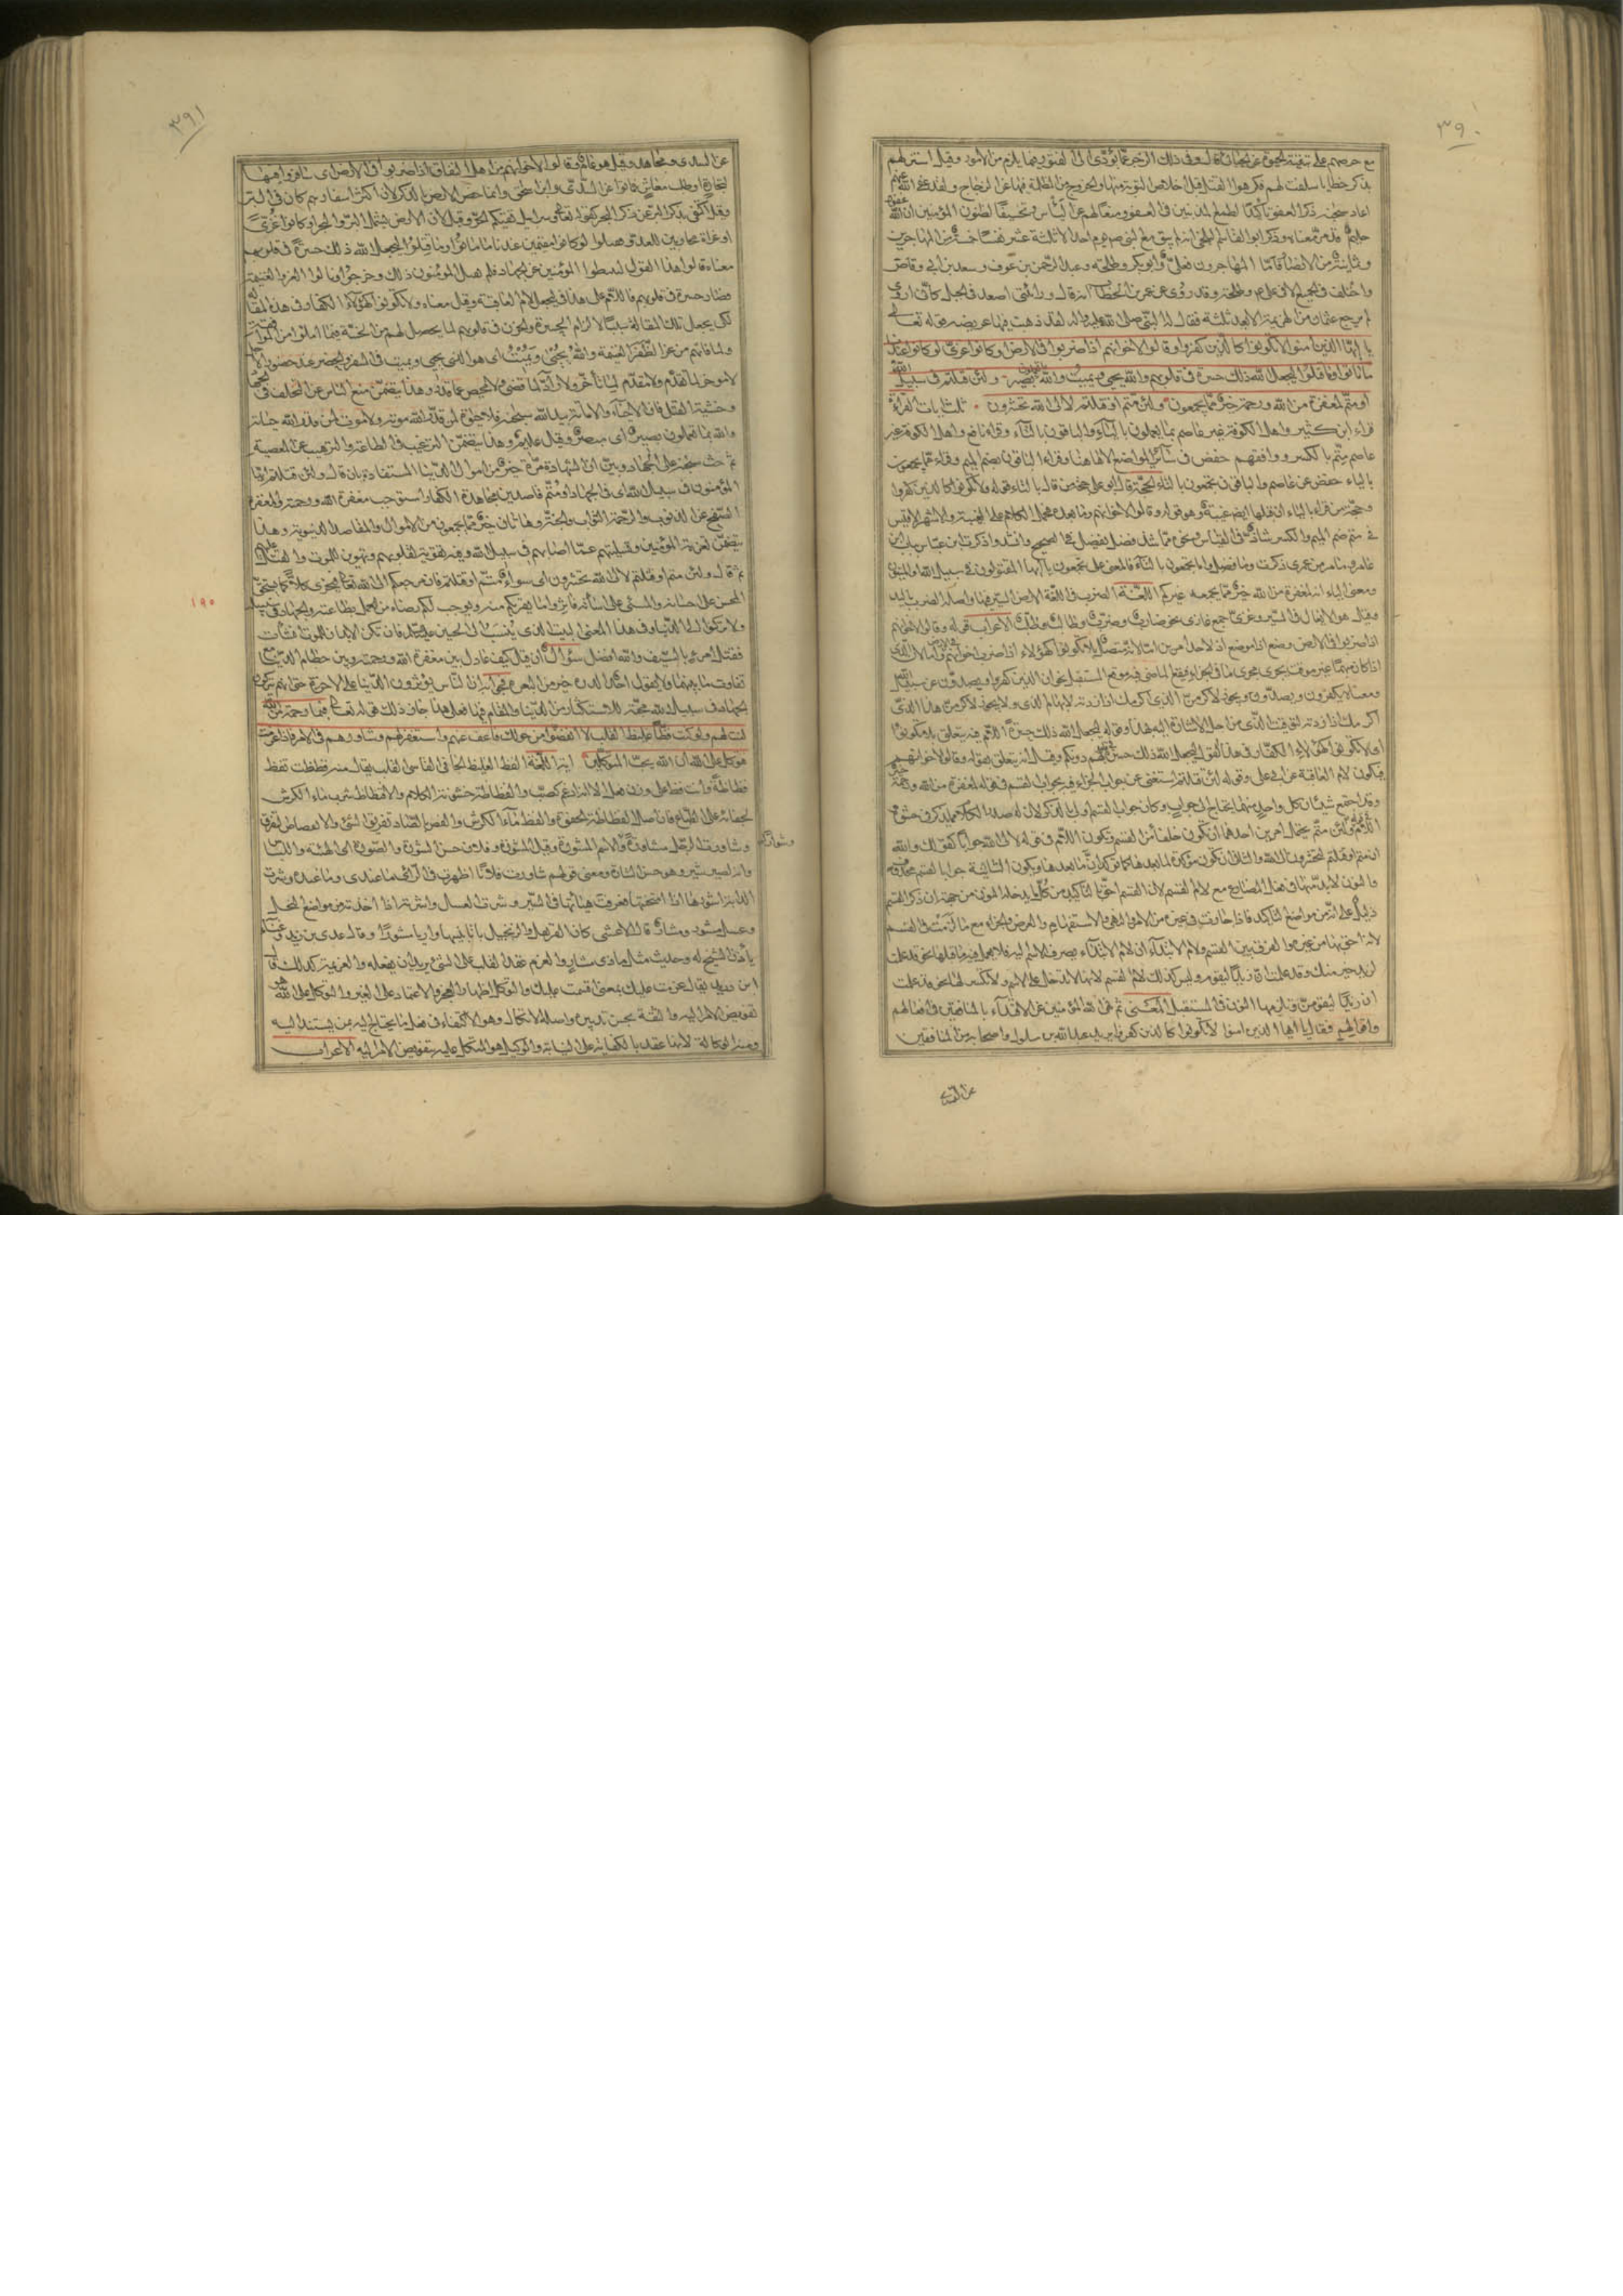 ٣٩٠
مع حرصهم على تبقية الحيوة عن الجبائي قال وفي ذلك الزجر عما يؤدي الى الفتور فيما يلزم من الامور وقيل استزلهم
بذكر خطايا سلفت لهم فكرهوا القتل قبل اخلاص التوبة منها والخروج من المظلمة فيها عن الزجاج ولقد عفى الله عنهم
اعاد سبحانه ذكر العفو تأكيدا لطمع المذنبين في العفو ومنعا لهم عن اليأس وتحسينا لظنون المؤمنين ان الله غفور
حليم قد مر معناه وذكر ابو القاسم البلخي انه لم يبق مع النبي ص يوم احد الا ثلثة عشر نفسا خمسة من المهاجرين
وثمانية من الانصار فاما المهاجرون فعلي ع وابو بكر وطلحة وعبد الرحمن بن عوف وسعد بن ابي وقاص
واختلف في الجميع الا في علي ع وطلحة وقد روي عن عمر بن الخطاب انه قال ورأيتني اصعد في الجبل كأني اروى
لم يرجع عثمان من الهزيمة الا بعد ثلثة فقال له النبي صلى الله عليه واله لقد ذهبت فيها عريضة قوله تعالى
يا ايها الذين آمنوا لا تكونوا كالذين كفروا وقالوا لاخوانهم اذا ضربوا في الارض او كانوا غزى لو كانوا عندنا
ما ماتوا وما قتلوا ليجعل الله ذلك حسرة في قلوبهم والله يحيي ويميت والله بما تعملون بصير ولئن قتلتم في سبيل الله
او متم لمغفرة من الله ورحمة خير مما يجمعون ولئن متم او قتلتم لالى الله تحشرون ثلث ايات القراءة
قراء ابن كثير واهل الكوفة غير عاصم بما يعملون بالياء والباقون بالتاء وقراء نافع واهل الكوفة غير
عاصم متم بالكسر ووافقهم حفص في سائر المواضع الا هاهنا وقراء الباقون بضم الميم وقراء مما يجمعون
بالياء حفص عن عاصم والباقون تجمعون بالتاء الحجة قال ابو علي حجة من قال بالتاء قوله ولا تكونوا كالذين كفروا
وحجة من قراء بالياء ان قبلها ايضا غيبة وهو قوله وقالوا لاخوانهم وما بعده فحمل الكلام على الغيبة والاشهر الاقيس
في متم ضم الميم والكسر شاذ في القياس ونحوه مما شذ فضل يفضل في الصحيح وانشدوا ذكرت ابن عباس بباب ابن
عامر وما مر من عمري ذكرت وما فضل واما تجمعون بالتاء فالمعنى على تجمعون ايها المقتولون في سبيل الله او الميتون
ومعنى الياء انه لمغفرة من الله خير مما يجمعه غيركم اللغة الضرب في اللغة الارض السير فيها واصله الضرب باليد
وقيل هو الايغال في السير وغزى جمع غازي نحو ضارب وضرب وطالب وطلب الاعراب قوله وقالوا لاخوانهم
اذا ضربوا في الارض وضع اذا موضع اذ لاحد امرين
اذا كان مبهما غير موقت يجرى مجرى ما في الجزاء فيقع الماضي فيه موقع المستقبل نحو ان الذين كفروا ويصدون عن سبيل الله
ومعناه يكفرون ويصدون ويجوز لاكرمن الذي اكرمك اذا زرته لابهام الذي ولا يجوز لاكرمن هذا الذي
اكرمك اذا زرته لتوقيت الذي من اجل الاشارة اليه بهذا وقوله ليجعل الله ذلك حسرة اللام فيه يتعلق بلا تكونوا
اي لا تكونوا كهؤلاء الكفار في هذا القول ليجعل الله ذلك حسرة في قلوبهم دونكم وقيل انه يتعلق بقوله وقالوا لاخوانهم
فيكون لام العاقبة عن ابي علي وقوله لئن قتلتم استغنى عن جواب الجزاء فيه بجواب القسم في قوله لمغفرة من الله ورحمة خير
وقد اجتمع شيئان كل واحد منهما يحتاج الى جواب وكان جواب القسم اولى بالذكر لان له صدر الكلام مما يذكر في حشوه
اللام في ولئن متم يحتمل امرين احدهما ان تكون خلفا من القسم وتكون اللام في قوله لالى الله جوابا كقولك والله
ان متم او قتلتم لتحشرون الى الله والثاني ان تكون مؤكدة لما بعدها كما تؤكد ان ما بعدها وتكون الثانية جوابا لقسم محذوف
والنون لا بد منها في فعل المضارع مع لام القسم لان القسم احق بالتأكيد من كل ما يدخله النون من جهة ان ذكر القسم
دليل على انه من مواضع التأكيد فاذا جازت في غيره من الامر والنهي والاستفهام والعرض والجزاء مع ما لزمت في القسم
لانه احق بها من غيره والفرق بين القسم ولام الابتداء ان لام الابتداء يصرف الاسم اليه فلا يعمل فيه ما قبلها نحو قد علمت
لزيد خير منك وقد علمت ان زيدا ليقوم وليس كذلك لام القسم لانها لا تدخل على الاسم ولا تكسر لها نحو قد علمت
ان زيدا ليقومن ويلزمها النون في المستقبل المعنى ثم نهى الله المؤمنين عن الاقتداء بالمنافقين في افعالهم
واقوالهم فقال يا ايها الذين امنوا لا تكونوا كالذين كفروا يريد عبد الله بن سلول واصحابه من المنافقين
عن السدي
٣٩١
عن السدي ومجاهد وقيل هو عام وقالوا لاخوانهم من اهل النفاق اذا ضربوا في الارض اي سافروا فيها
لتجارة او طلب معاش فماتوا عن السدي وابن اسحق وانما خص الارض بالذكر لان اكثر اسفارهم كان في البر
وقيل اكتفى بذكر البر عن ذكر البحر كقوله تعالى سرابيل تقيكم الحر وقيل لان الارض يشتمل البر والبحر او كانوا غزى
او غزاة محاربين للعدو فقتلوا لو كانوا مقيمين عندنا ما ماتوا وما قتلوا ليجعل الله ذلك حسرة في قلوبهم
معناه قالوا هذا القول ليثبطوا المؤمنين عن الجهاد فلم يقبل المؤمنون ذلك وخرجوا ونالوا العز والغنيمة
فصار حسرة في قلوبهم فاللام على هذا في ليجعل لام العاقبة وقيل معناه ولا تكونوا كهؤلاء الكفار في هذه المقالة
لكي يجعل تلك المقالة سببا لالزام الحسرة والحزن في قلوبهم لما يحصل لهم من الخيبة فيما املوا من الموافقة
ولما فاتهم من عز الظفر والغنيمة والله يحيي ويميت اي هو الذي يحيي ويميت في السفر والحضر عند حضور الاجل
لا مؤخر لما قدم ولا مقدم لما اخر ولا راد لما قضى ولا محيص عما قدر وهذا يتضمن منع الناس عن التخلف في الجهاد
وخشية القتل فان الاحياء والاماتة بيد الله سبحانه فلا حيوة لمن قدر الله موته ولا موت لمن قدر الله حياته
والله بما تعملون بصير اي مبصر وقيل عليم وهذا يتضمن الترغيب في الطاعة والترهيب عن المعصية
ثم حث سبحانه على الجهاد وبين ان الشهادة مرة خير من اموال الدنيا المستفادة بان قال ولئن قتلتم ايها
المؤمنون في سبيل الله اي في الجهاد او متم قاصدين مجاهدة الكفار استوجب مغفرة الله ورحمته والمغفرة
الصفح عن الذنوب والرحمة الثواب والجنة وهاتان خير مما يجمعون من الاموال والمقاصد الدنيوية وهذا
يتضمن تعزية المؤمنين وتسليتهم عما اصابهم في سبيل الله وفيه تقوية لقلوبهم وتهوين للموت والقتل عليهم
ثم قال ولئن متم او قتلتم لالى الله تحشرون اي سواء متم او قتلتم فان مرجعكم الى الله تعالى فيجزي كلا كما يستحق
المحسن على احسانه والمسيء على اسائته فاثروا ما يقربكم منه ويوجب لكم رضاه من العمل بطاعته والجهاد في سبيله
ولا تركنوا الى الدنيا وفي هذا المعنى البيت الذي ينسب الى الحسين عليه السلام فان تكن الابدان للموت انشأت
فقتل امرئ بالسيف والله افضل سؤال ان قيل كيف عادل بين مغفرة الله ورحمته وبين حطام الدنيا مع
تفاوت ما بينهما ولا يقول احد الدرة خير من البعرة فجوابه ان الناس يؤثرون الدنيا على الاخرة حتى انهم يتركون
الجهاد في سبيل الله محبة للاستكثار من الدنيا والمقام فيها فعلى هذا جاز ذلك قوله تعالى فبما رحمة من الله
لنت لهم ولو كنت فظا غليظ القلب لانفضوا من حولك فاعف عنهم واستغفر لهم وشاورهم في الامر فاذا عزمت
فتوكل على الله ان الله يحب المتوكلين اية اللغة الفظ الغليظ الجافي القاسي القلب يقال منه فظظت تفظ
فظاظة وانت فظ على وزن فعل الا انه ادغم كصب والفظاظة خشونة الكلام والافتظاظ شرب ماء الكرش
لجفائه على الطباع فان اصل الفظاظة الجفوة والفظ ماء الكرش والفض بالضاد تفريق الشيء والانفضاض التفرق
وشاورت الرجل مشاورة وشوارا والاسم المشورة وقيل المشورة وفلان حسن الشورة والصورة اي الهيئة واللباس
وانه لصير شير وهو حسن الشارة ومعنى قولهم شاورت فلانا اظهرت في الراي ما عندي وما عنده وشرت
الدابة اشورها اذا امتحنتها فعرفت هيئاتها في السير وشرت العسل واشرته اذا اخذته من مواضع النحل
وعسل مشور ومشار قال الاعشى كان القرنفل والزنجبيل باتا بفيها واريا مشورا وقال عدي بن زيد في سماع
يأذن الشيخ له وحديث مثل ماذي مشار والعزم عقد القلب على الشيء يريد ان يفعله والعزيمة كذلك قال
ابن دريد يقال عزمت عليك بمعنى اقسمت عليك والتوكل اظهار العجز والاعتماد على الغير والتوكل على الله هو
تفويض الامر اليه والثقة بحسن تدبيره واصله الاتكال وهو الاكتفاء في فعل ما يحتاج اليه بمن يستند اليه
ومنه الوكالة لانها عقد بالكفاية على النيابة والوكيل هو المتكل عليه بتفويض الامر اليه الاعراب
وشوارا
١٩٥